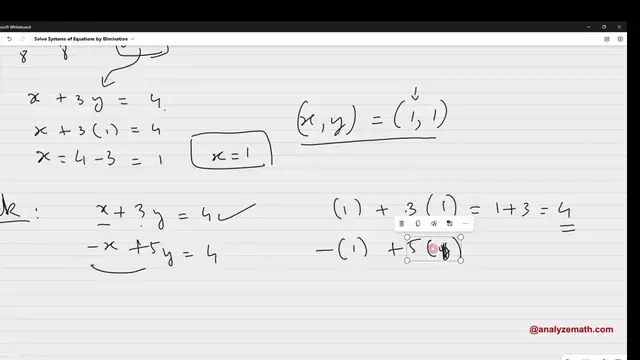 Microsoft Whiteboard
Solve Systems of Equations by Elimination
x + 3y = 4
x + 3(1) = 4
x = 4 - 3 = 1
x = 1
(x, y) = (1, 1)
x + 3y = 4 ✓
(1) + 3(1) = 1 + 3 = 4
-x + 5y = 4
-(1) + 5(
@analyzemath.com